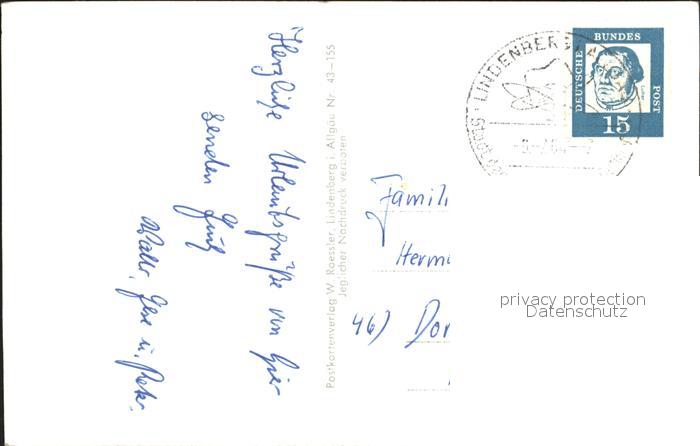 Herzliche Urlaubsgrüße von hier
senden Euch
Walter, Ilse u. Peter.
Postkartenverlag W. Roessler, Lindenberg i. Allgäu Nr 43-155
Jeglicher Nachdruck verboten
LINDENBERG
DEUTSCHE
BUNDES
POST
15
Famili
Herm
46) Dor
privacy protection
Datenschutz